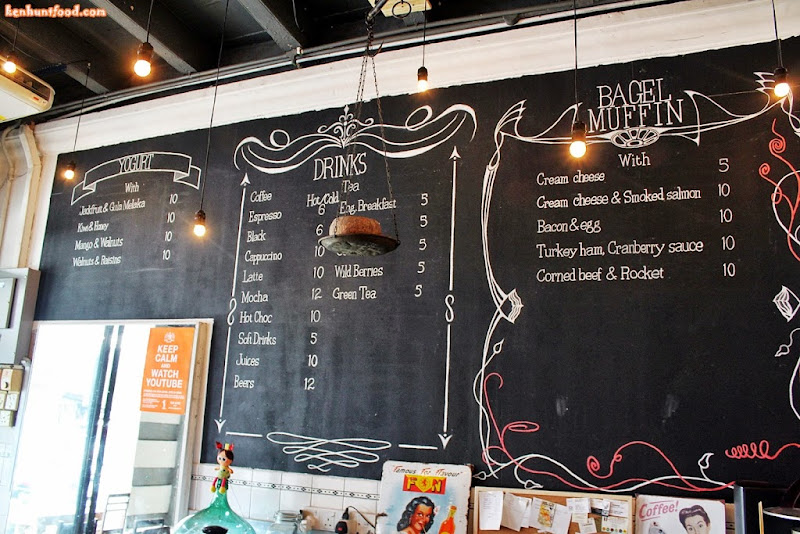 kenhuntfood.com
YOGURT
With
Jackfruit & Gula Melaka 10
Kiwi & Honey 10
Mango & Walnuts 10
Walnuts & Raisins 10
DRINKS
Coffee
Hot/Cold
Espresso 6
Black 6
Cappuccino
Latte 10
Mocha 12
Hot Choc 10
Soft Drinks 5
Juices 10
Beers 12
Tea
Eng. Breakfast 5
5
5
Wild Berries 5
Green Tea 5
BAGEL
MUFFIN
With
Cream cheese 5
Cream cheese & Smoked salmon 10
Bacon & egg 10
Turkey ham, Cranberry sauce 10
Corned beef & Rocket 10
KEEP
CALM
AND
WATCH
YOUTUBE
Famous For Flavour
FON
Coffee!